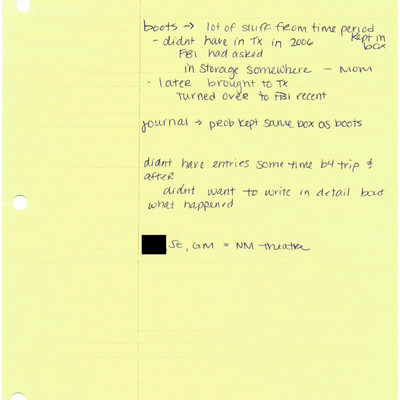 boots → lot of stuff from time period
kept in box
- didnt have in Tx in 2006
FBI had asked
in storage somewhere - MOM
- later brought to Tx
turned over to FBI recent
journal → prob kept same box as boots
didnt have entries some time b4 trip &
after
didnt want to write in detail bout
what happened
JE, GM = NM theatre